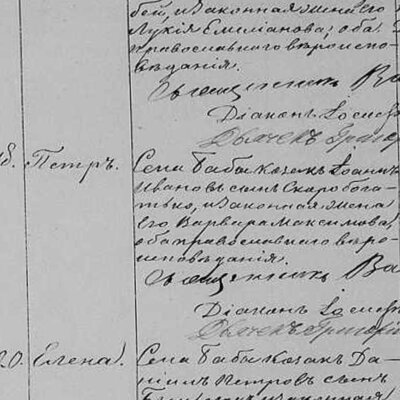 бей, и законная жена его
Лукія Емиліанова; оба
православнаго вѣроиспо-
вѣданія.
Священникъ Ва
Діаконъ Іосиф
Дьячекъ Григор
Петръ. Села Бабы козакъ Іоаннъ
Ивановъ сынъ Скоробога-
тько, и законная жена
его Варвара Максимова,
оба православнаго вѣро-
исповѣданія.
Священникъ Ва
Діаконъ Іосиф
Дьячекъ Григорій
20. Елена. Села Бабы козакъ Да-
ніилъ Петровъ сынъ
и законная